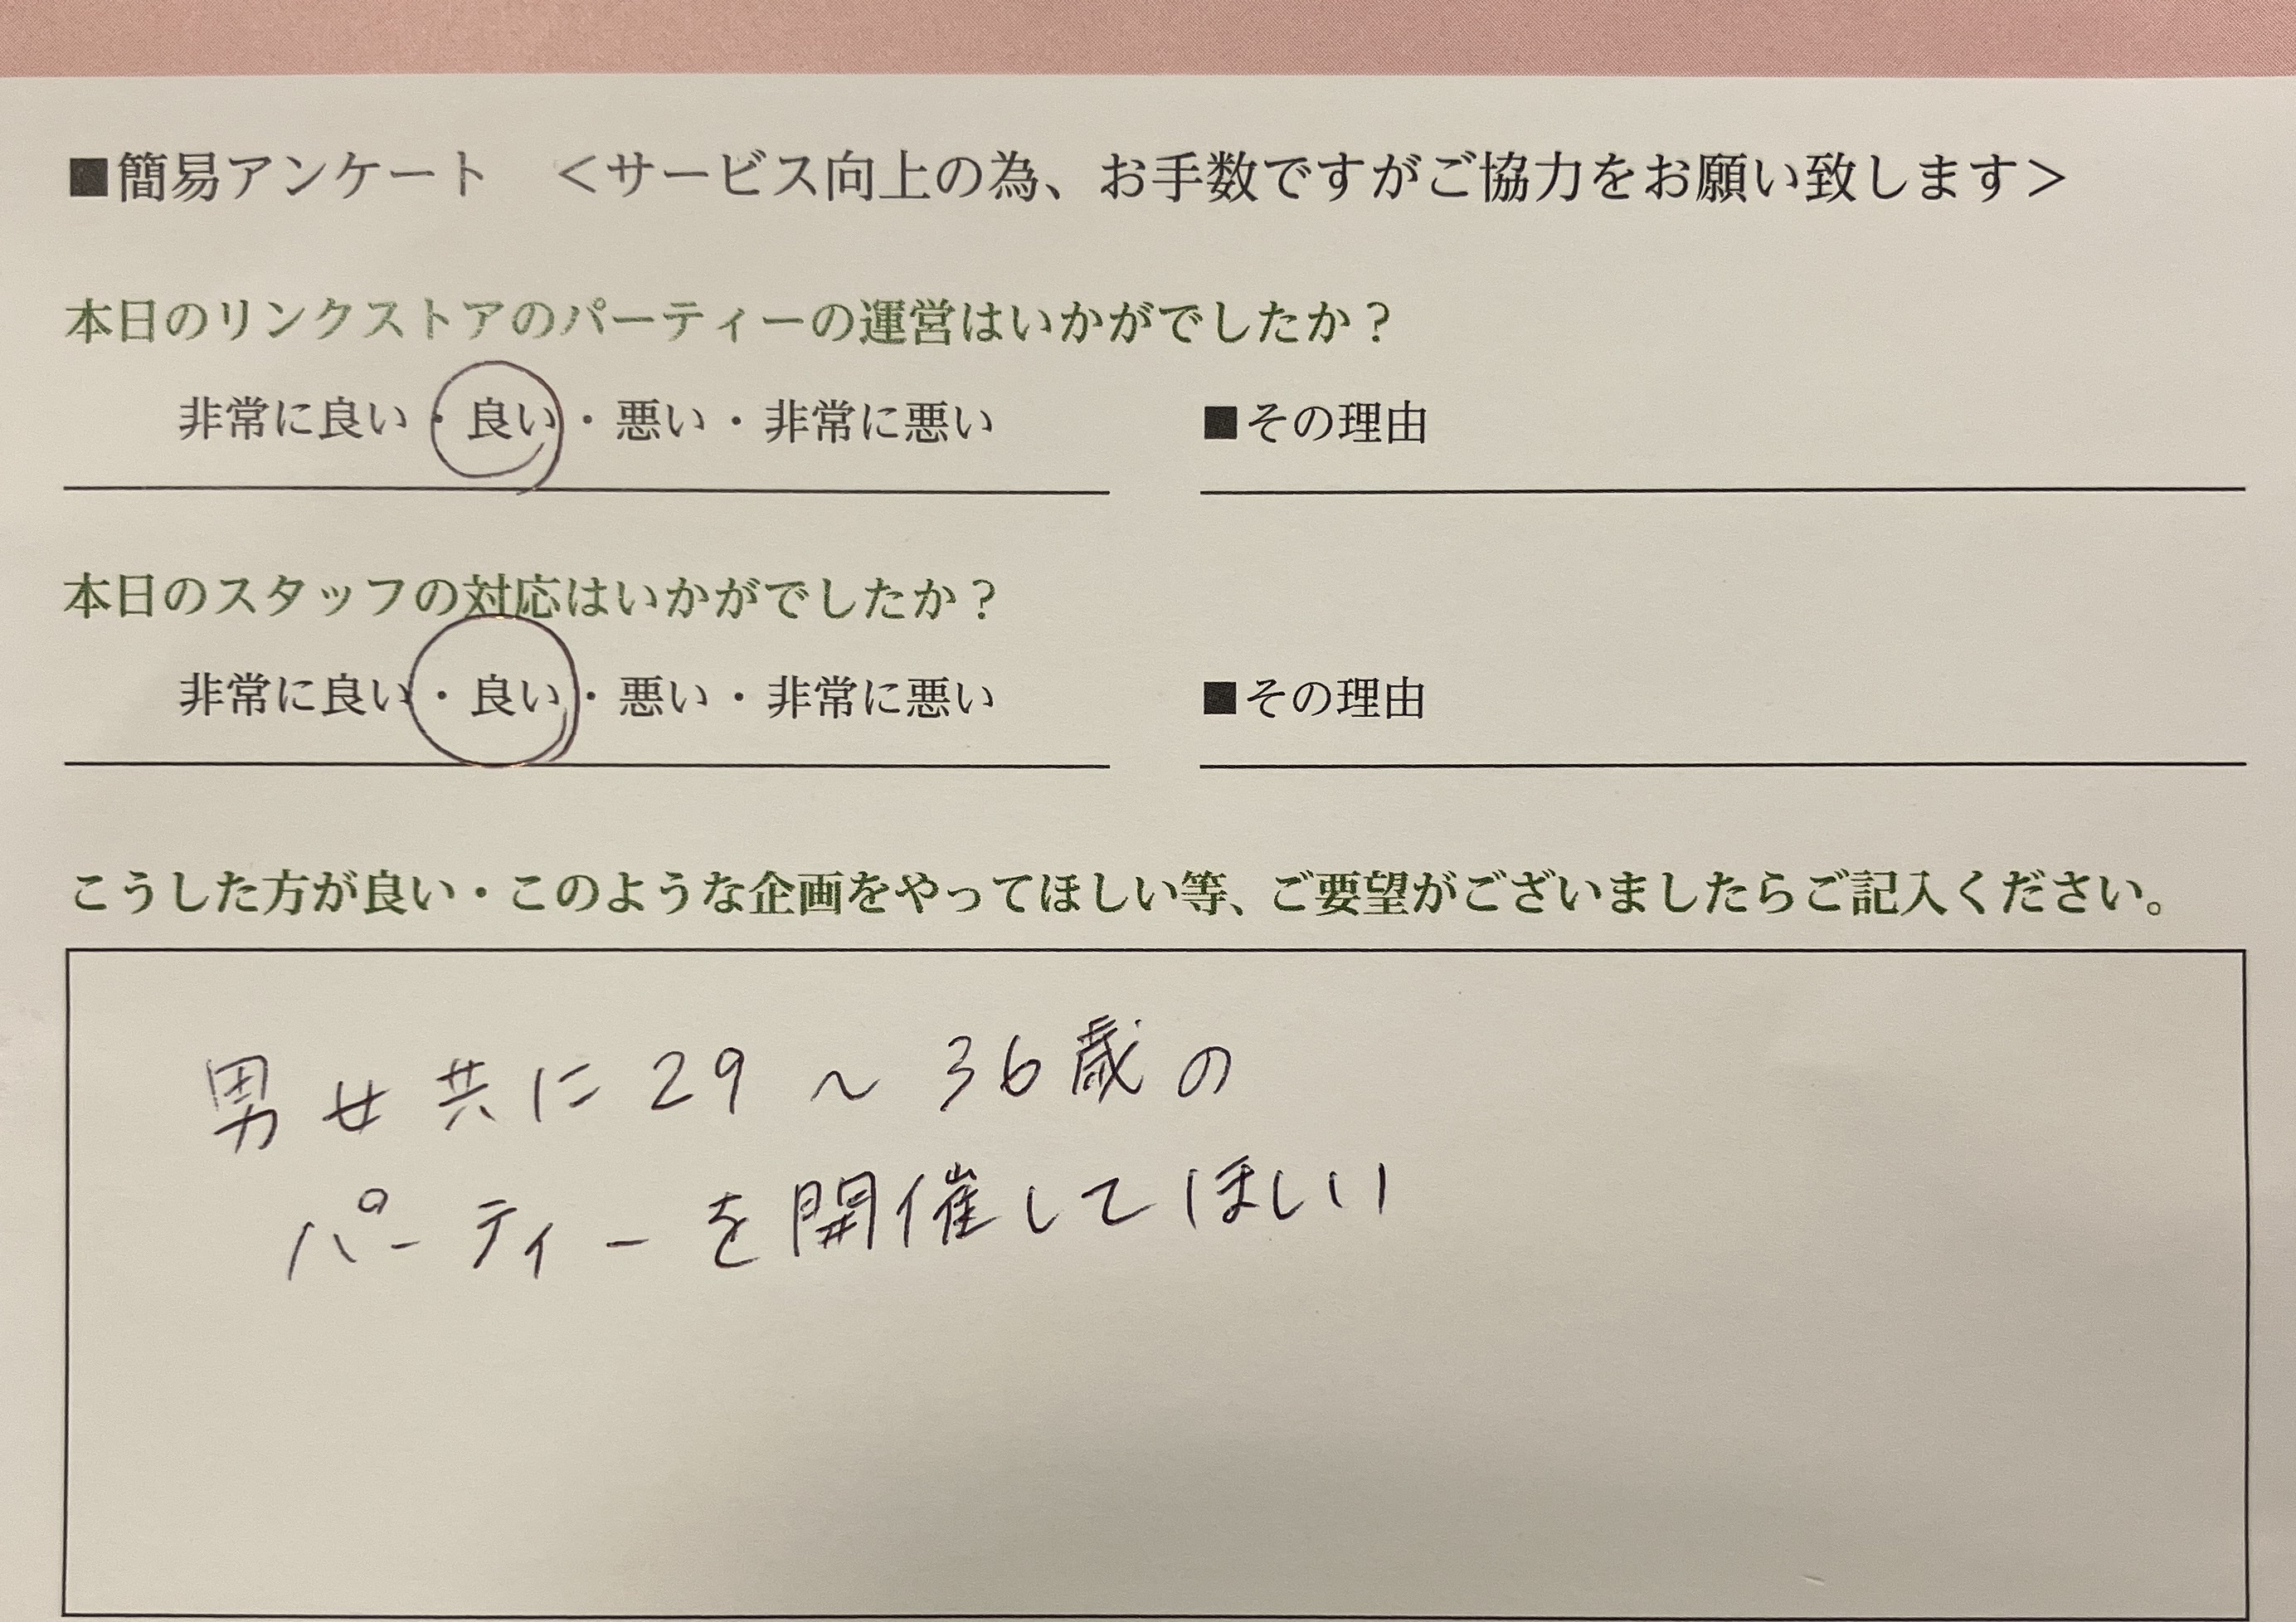 ■簡易アンケート　＜サービス向上の為、お手数ですがご協力をお願い致します＞
本日のリンクストアのパーティーの運営はいかがでしたか？
非常に良い・良い・悪い・非常に悪い　■その理由
本日のスタッフの対応はいかがでしたか？
非常に良い・良い・悪い・非常に悪い　■その理由
こうした方が良い・このような企画をやってほしい等、ご要望がございましたらご記入ください。
男女共に29～36歳の
パーティーを開催してほしい